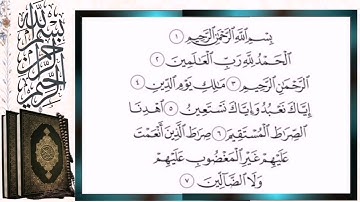 بِسْمِ اللَّهِ الرَّحْمَٰنِ الرَّحِيمِ ١
الْحَمْدُ لِلَّهِ رَبِّ الْعَالَمِينَ ٢
الرَّحْمَٰنِ الرَّحِيمِ ٣ مَالِكِ يَوْمِ الدِّينِ ٤
إِيَّاكَ نَعْبُدُ وَإِيَّاكَ نَسْتَعِينُ ٥ اهْدِنَا
الصِّرَاطَ الْمُسْتَقِيمَ ٦ صِرَاطَ الَّذِينَ أَنْعَمْتَ
عَلَيْهِمْ غَيْرِ الْمَغْضُوبِ عَلَيْهِمْ
وَلَا الضَّالِّينَ ٧
بسم الله
الرحمن
الرحيم